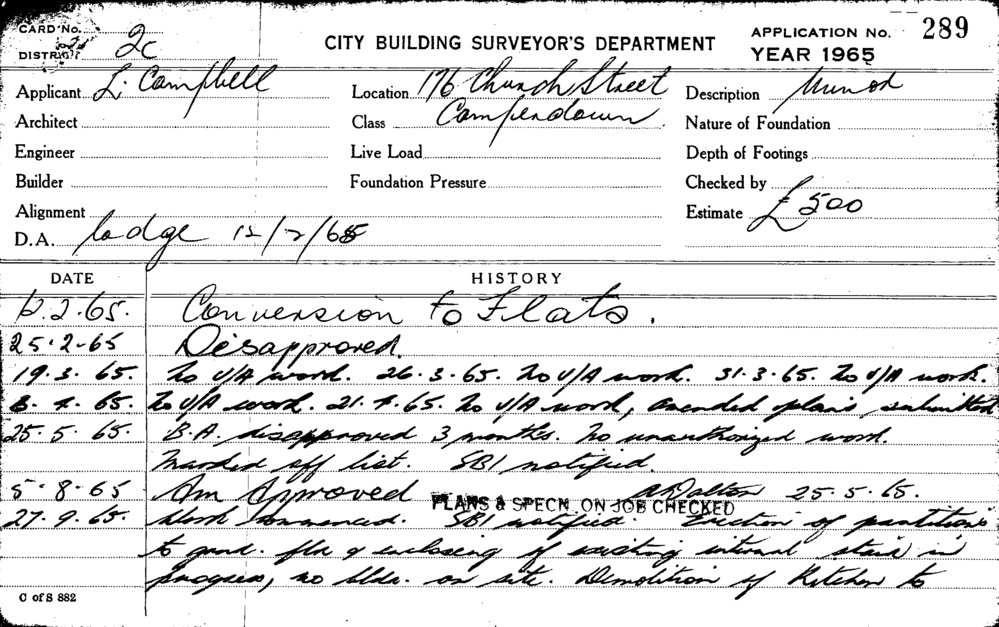 CARD No.
DISTRICT 2c
CITY BUILDING SURVEYOR'S DEPARTMENT
APPLICATION No. 289
YEAR 1965
Applicant L. Campbell
Location 176 Church Street
Description Minor
Architect
Class Camperdown
Nature of Foundation
Engineer
Live Load
Depth of Footings
Builder
Foundation Pressure
Checked by
Alignment
Estimate £500
D.A. lodge 12/2/65
DATE HISTORY
12.2.65. Conversion to Flats.
25.2-65 Disapproved.
19.3.65. No U/A work. 26.3.65. No U/A work. 31.3.65. No U/A work.
8.4.65. No U/A work. 21.4.65. No U/A work, amended plans submitted
25.5.65. B.A. disapproved 3 months. No unauthorized work.
Marked off list. SBI notified.
5.8.65 Am Approved PLANS & SPECN. ON JOB CHECKED 25.5.65.
27.9.65. Work commenced. SBI notified. Erection of partitions
to grnd. flr & enclosing of existing internal stairs in
progress, no bldr. on site. Demolition of Kitchen to
C of S 882